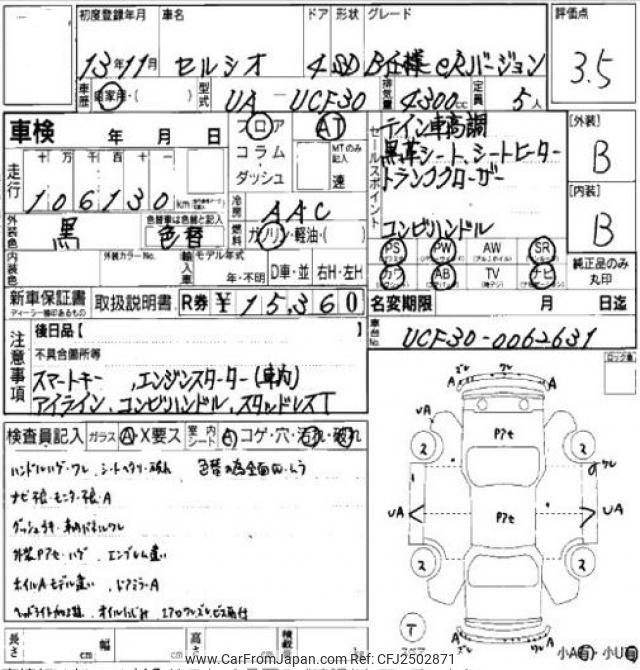 初度登録年月 車名 ドア 形状 グレード 評価点
13年11月 セルシオ 4 SD B仕様eRバージョン 3.5
車歴 自家用・( ) 型式 UA - UCF30 排気量 4300cc 定員 5人
車検 年 月 日
フロア AT
コラム MTのみ記入
ダッシュ 速
セールスポイント
テイン車高調
黒革シート、シートヒーター
トランククローザー
コンビハンドル
[外装]
B
[内装]
B
走行 十 万 千 百 十 一
106130 km
冷房 AAC
外装色 黒 色替車は色替と記入 色替
燃料 ガソリン・軽油・( )
PS PW AW SR
カワ AB TV ナビ
純正品のみ丸印
内装色 外装カラーNo. 輸入車 モデル年式 年・不明 D車・並 右H・左H
新車保証書 取扱説明書 R券 ¥ 15,360
ディーラー捺印あるもの
名変期限 月 日迄
車台No. UCF30-0062631
注意事項
後日品【 】
不具合箇所等
スマートキー 、エンジンスターター(車内)
アイライン、コンビハンドル、スタッドレスT
検査員記入 ガラス A・X要ス 室内シート A コゲ・穴・汚れ・破れ
ハンドルハゲ・ワレ、シートヘタリ・破れ 色替の為全面
ナビ不良・モニター不良・A
外装Pアセ・ハゲ エンブレム違い
ホイルAモデル違い、ドアミラーA
ズレ ワレ
A A
UA
2 2
Pアセ
ワレ
UA UA
Pアセ
2 2
T
スペア
A A
小A有・小U有
長さ cm 幅 cm 高さ cm 積載
www.CarFromJapan.com Ref: CFJ2502871